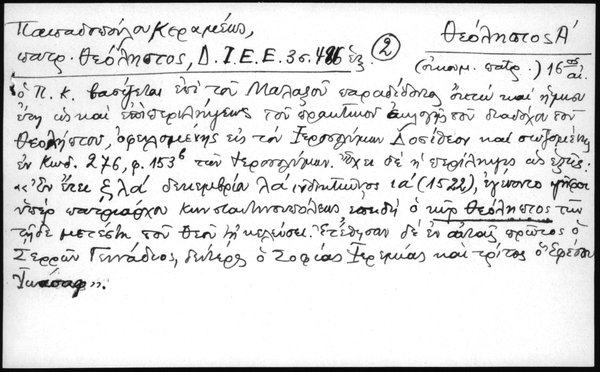 Παπαδοπούλου Κεραμέως,
πατρ. Θεόληπτος, Δ.Ι.Ε.Ε. 3 σ. 486 ἑξ.
2
Θεόληπτος Α΄
(οἰκουμ. πατρ.) 16ος αἰ.
ὁ Π. Κ. βασίζεται ἐπὶ τοῦ Μαλαξοῦ παραδίδοντος ὀκτὼ καὶ ἥμισυ
ἔτη ὡς καὶ ἐπὶ περιλήψεως τοῦ πρακτικοῦ ἐκλογῆς τοῦ διαδόχου τοῦ
Θεολήπτου, ὀφειλομένης εἰς τὸν Ἱεροσολύμων Δοσίθεον καὶ σωζομένης
ἐν Κωδ. 276, φ. 153β τῶν Ἱεροσολύμων. Ἔχει δὲ ἡ περίληψις ὡς ἑξῆς:
«Ἐν ἔτει ζλα΄ δεκεμβρίῳ λα΄ ἰνδικτιῶνος ια΄ (1522), ἐγένοντο ψῆφοι
ὑπὲρ πατριάρχου Κωνσταντινουπόλεως ἐπειδὴ ὁ κὺρ Θεόληπτος τῶν
τῇδε μετέστη τοῦ Θεοῦ τῇ κελεύσει. Ἐτέθησαν δὲ ἐν αὐταῖς πρῶτος ὁ
Σερρῶν Γεννάδιος, δεύτερος ὁ Σοφίας Ἱερεμίας καὶ τρίτος ὁ Ἐφέσου
Ἰωάσαφ».